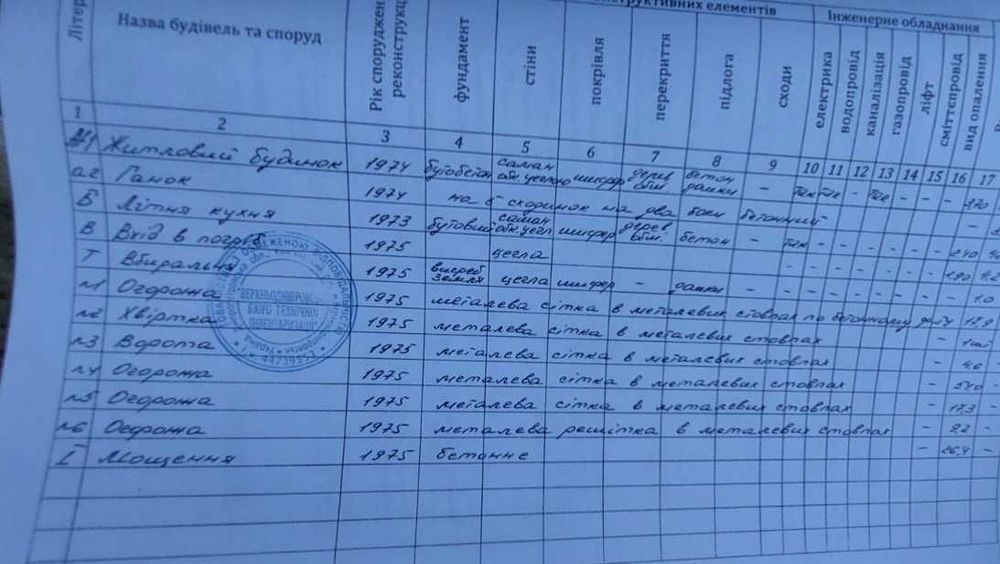 конструктивних елементів Інженерне обладнання
Літер Назва будівель та споруд Рік спорудження реконструкції фундамент стіни покрівля перекриття підлога сходи електрика водопровід каналізація газопровід ліфт сміттєпровід вид опалення
1 2 3 4 5 6 7 8 9 10 11 12 13 14 15 16 17
А1 Житловий будинок 1974 бутобетон саман обк. цеглою шифер дерев бетон дошки - - - -
а2 Ганок 1974 на 5 сходинок на два боки бетонний -
Б Літня кухня 1973 бутовий саман обк. цегл шифер дерев бетон - - - - - -
В Вхід в погріб 1975 цегла - - - - - -
Т Вбиральня 1975 вигреб земля цегла шифер - дошки - - - - - - - - 1.0
м1 Огорожа 1975 металева сітка в металевих стовпах по бетонному
м2 Хвіртка 1975 металева сітка в металевих стовпах -
м3 Ворота 1975 металева сітка в металевих стовпах - 4.6 -
м4 Огорожа 1975 металева сітка в металевих стовпах - -
м5 Огорожа 1975 металева сітка в металевих стовпах - 17.3 -
м6 Огорожа 1975 металева решітка в металевих стовпах - 9.2 -
I Мощення 1975 бетонне - 26.4 -
ВЕРХНЬОДНІПРОВСЬКЕ
БЮРО ТЕХНІЧНОЇ
ІНВЕНТАРИЗАЦІЇ